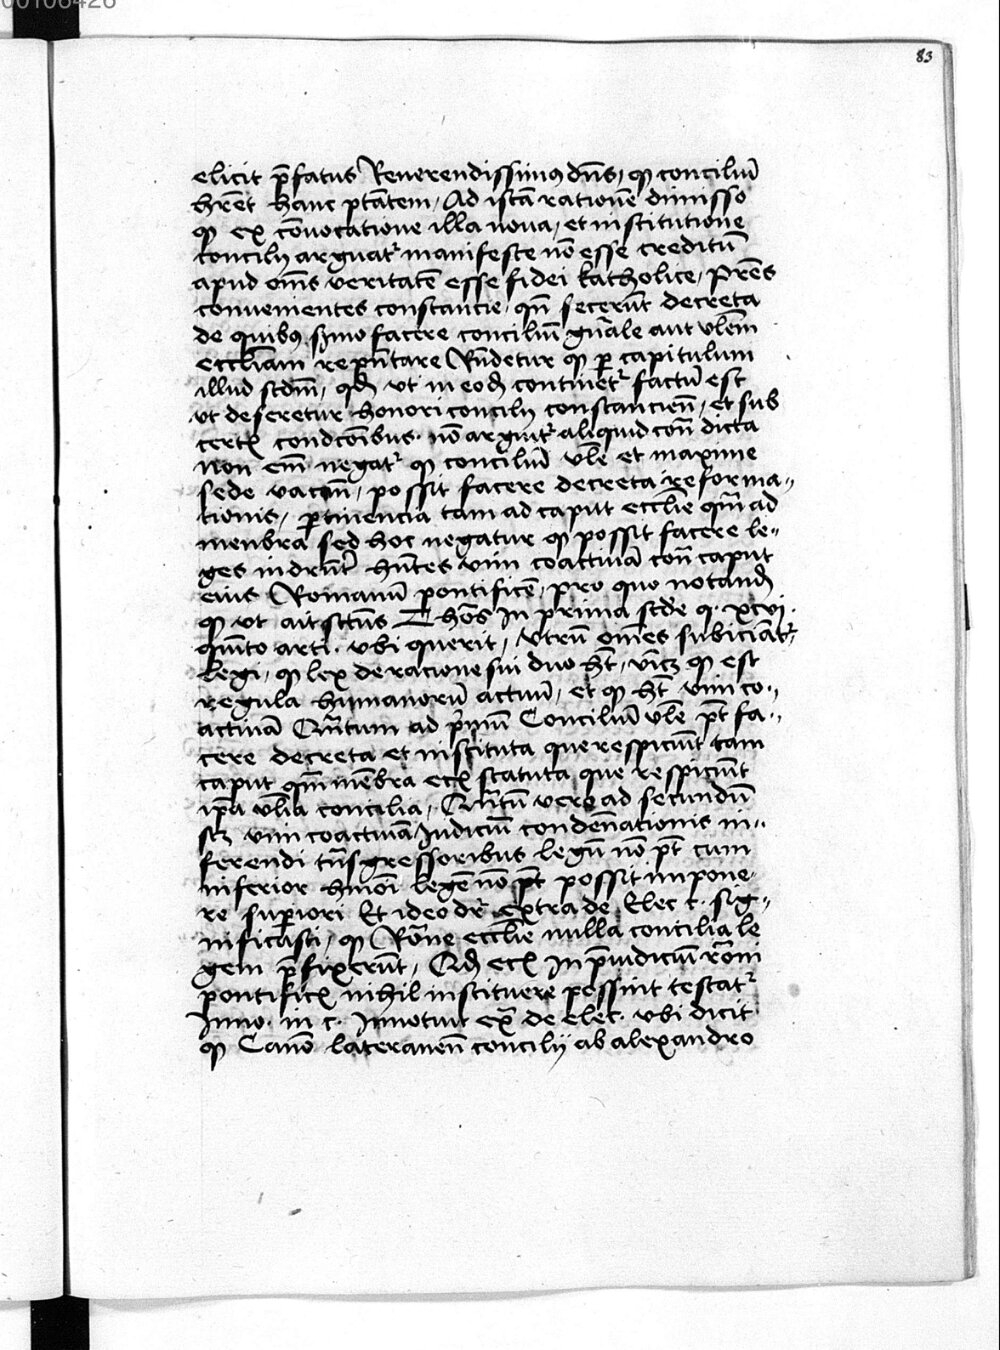 00106426
83
elicit p̄fatus Reuerendissimꝰ dn̄s, ꝙ conciliū
hr̄et hanc ptātem, Ad istā rationē dimisso
ꝙ ex cōuocatione illa noua, et institutione
concilij arguatʳ manifeste nō esse creditū
apud om̄s veritatē esse fidei katholice, Pr̄es
conuenientes constancie, qn̄ fecerūt decreta
de quibꝰ sᵐo facere conciliū gn̄ale aut vl̄em
eccl̄iam rep̄ntare Rn̄detur ꝙ ꝑ capitulum
illud scd̄m, qd̄ vt in eod̄ continetʳ factū est
vt deferetur honori concilij constancien̄, et sub
certꝭ condcōibus nō arguitʳ aliquid con̄ dicta
non em̄ negatʳ ꝙ conciliū vl̄e et maxime
sede vacan̄, possit facere decreta reforma„
tionis, ꝑtinencia tam ad caput eccl̄ie qm̄ ad
menbra sed hoc negatur ꝙ possit facere le„
ges indrn̄t hn̄tes vim coactiuā con̄ caput
eius Romanū pontificē, pro quo notand̄
ꝙ vt ait sctūs Thos̄ In prima scde q. xcvi.
quīto arti. vbi querit, vtrū om̄es subiciātʳ
legi, ꝙ lex de racione sui duo ht̄, vicꝫ ꝙ est
regula humanorū actuū, et ꝙ ht̄ vim co„
actiuā Qn̄tum ad p̄mū Conciliū vl̄e pt̄ fa„
cere decreta et instituta que respiciūt tam
caput qm̄ mēbra eciā statuta que respiciūt
ip̄a vl̄ia concilia, Qn̄tū vero ad secundū
scꝫ vim coactiuā Iudiciū condēnationis in„
ferendi tn̄sgressoribus legū nō pt̄ cum
inferior hm̄oi legē nō pt̄ possit impone
re suꝑiori Et ideo dr̄ extra de Elec c. sig„
nificasti, ꝙ Rōne eccl̄ie nulla concilia le
gem p̄fixerūt, Qd̄ eciā In p̄iudiciū rōni
pontificꝭ nihil instituere possint testatʳ
Inno. in c. Innotuit exᵃ de elec. vbi dicit
ꝙ Canō lateranen̄ concilij ab alexandro